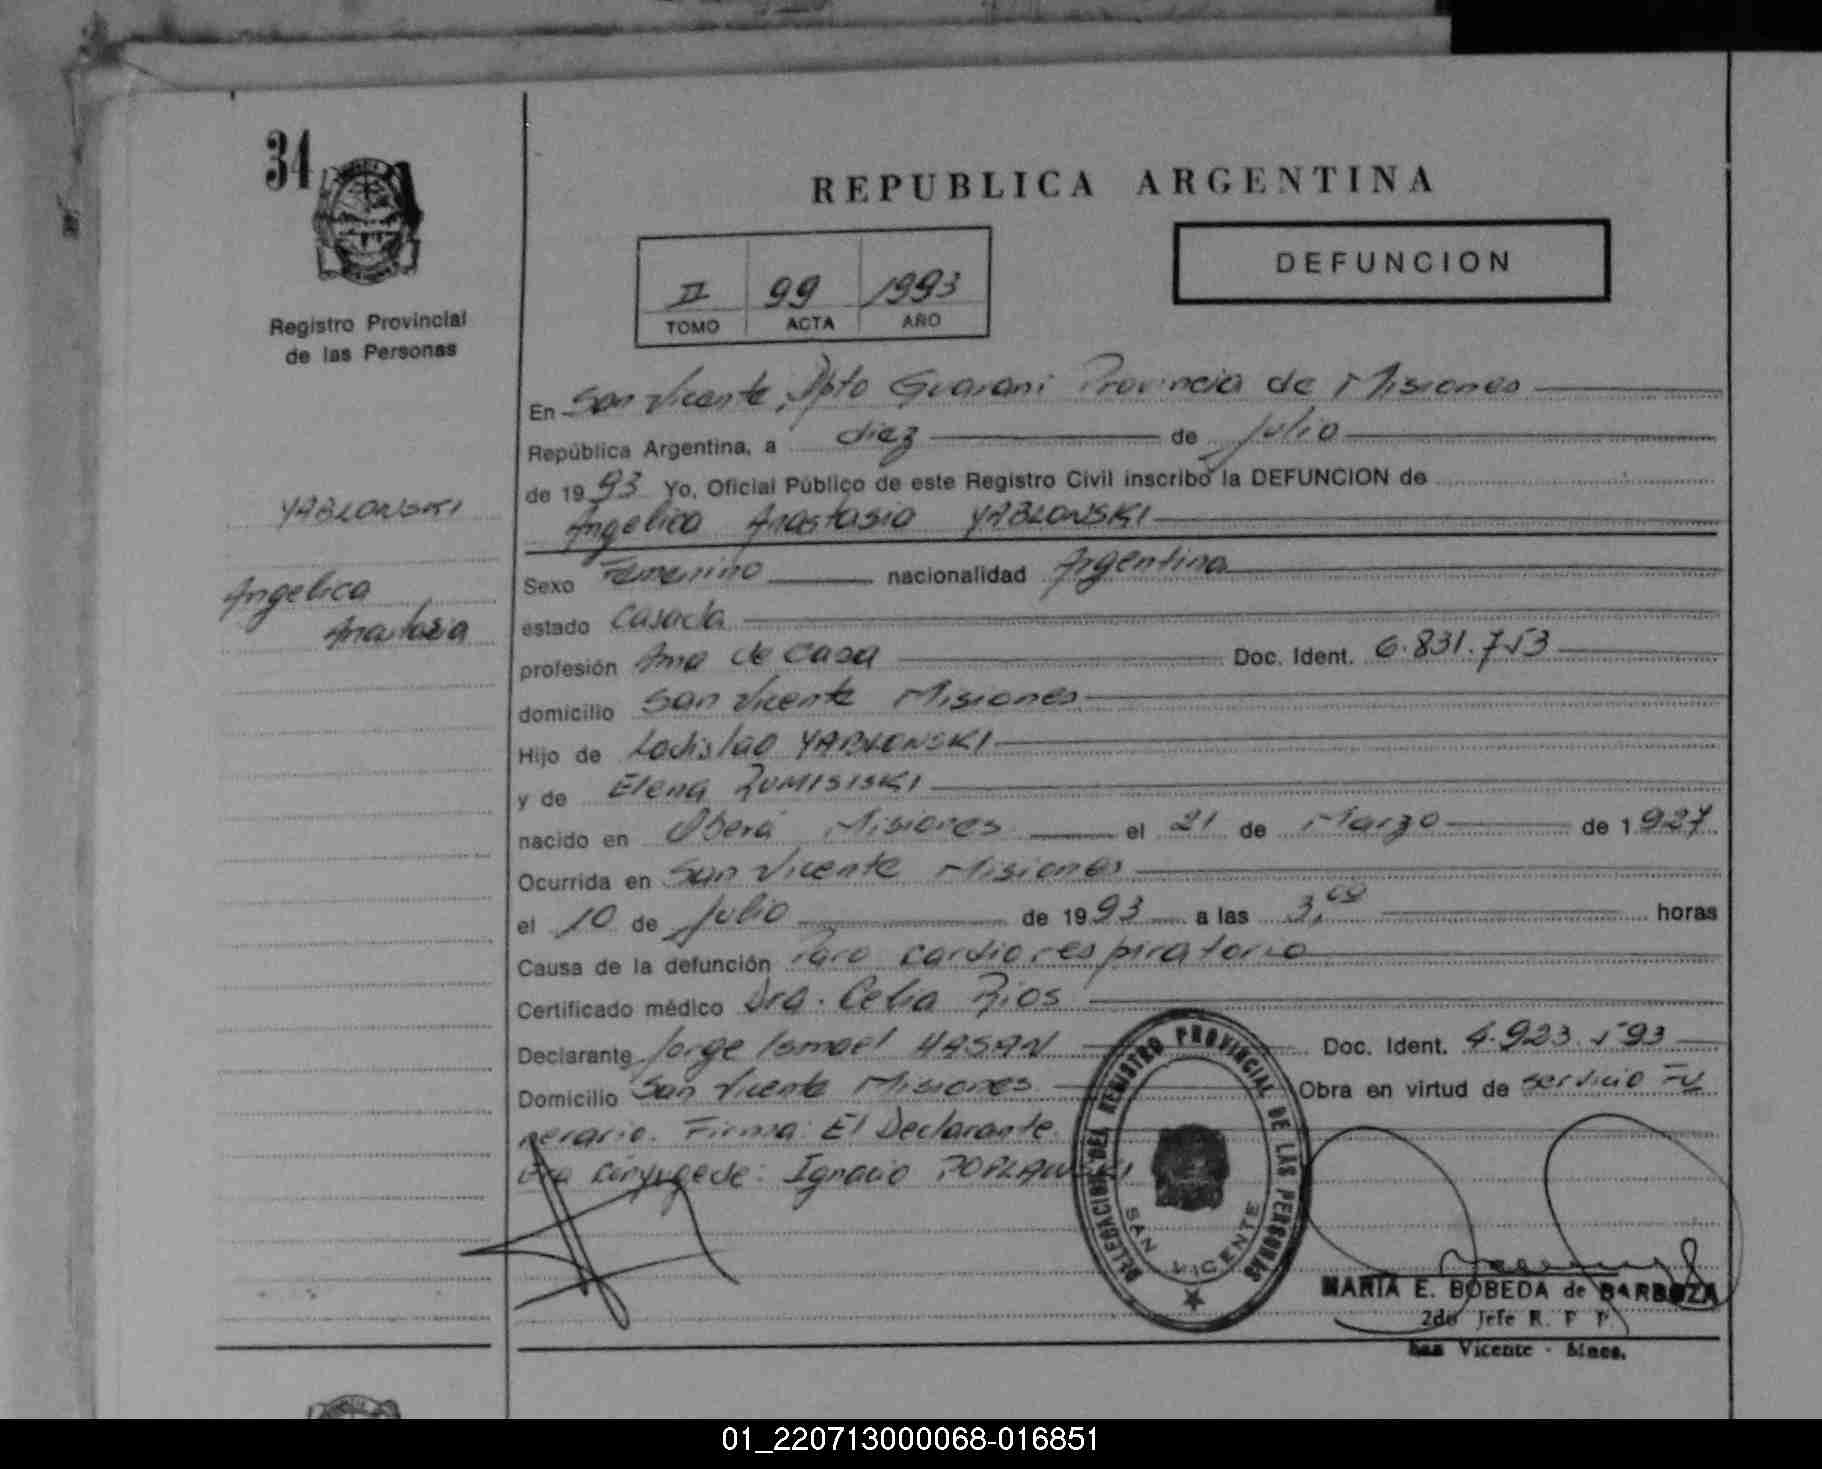 34
REPUBLICA ARGENTINA
DEFUNCION
II 99 1993
TOMO ACTA AÑO
Registro Provincial
de las Personas
YABLONSKI
Angelica
Anastasia
En San Vicente, Dpto Guarani Provincia de Misiones
República Argentina, a diez de Julio
de 1993 Yo, Oficial Público de este Registro Civil inscribo la DEFUNCION de
Angelica Anastasia YABLONSKI
Sexo Femenino nacionalidad Argentina
estado Casada
profesión Ama de Casa Doc. Ident. 6.831.753
domicilio San Vicente Misiones
Hijo de Ladislao YABLONSKI
y de Elena ZUMISISKI
nacido en Oberá Misiones el 21 de Marzo de 1.927
Ocurrida en San Vicente Misiones
el 10 de Julio de 1993 a las 3,00 horas
Causa de la defunción Paro cardiorespiratorio
Certificado médico Dra. Celia Rios
Declarante Jorge Ismael HASAN Doc. Ident. 4.923.593
Domicilio San Vicente Misiones Obra en virtud de servicio Fu
nerario. Firma: El Declarante.
Era Cónyuge de: Ignacio POPLAWSKI
DELEGACION DEL REGISTRO PROVINCIAL DE LAS PERSONAS
SAN VICENTE
MARIA E. BOBEDA de BARBOZA
2do Jefe R. P. P.
San Vicente - Mnes.
01_220713000068-016851